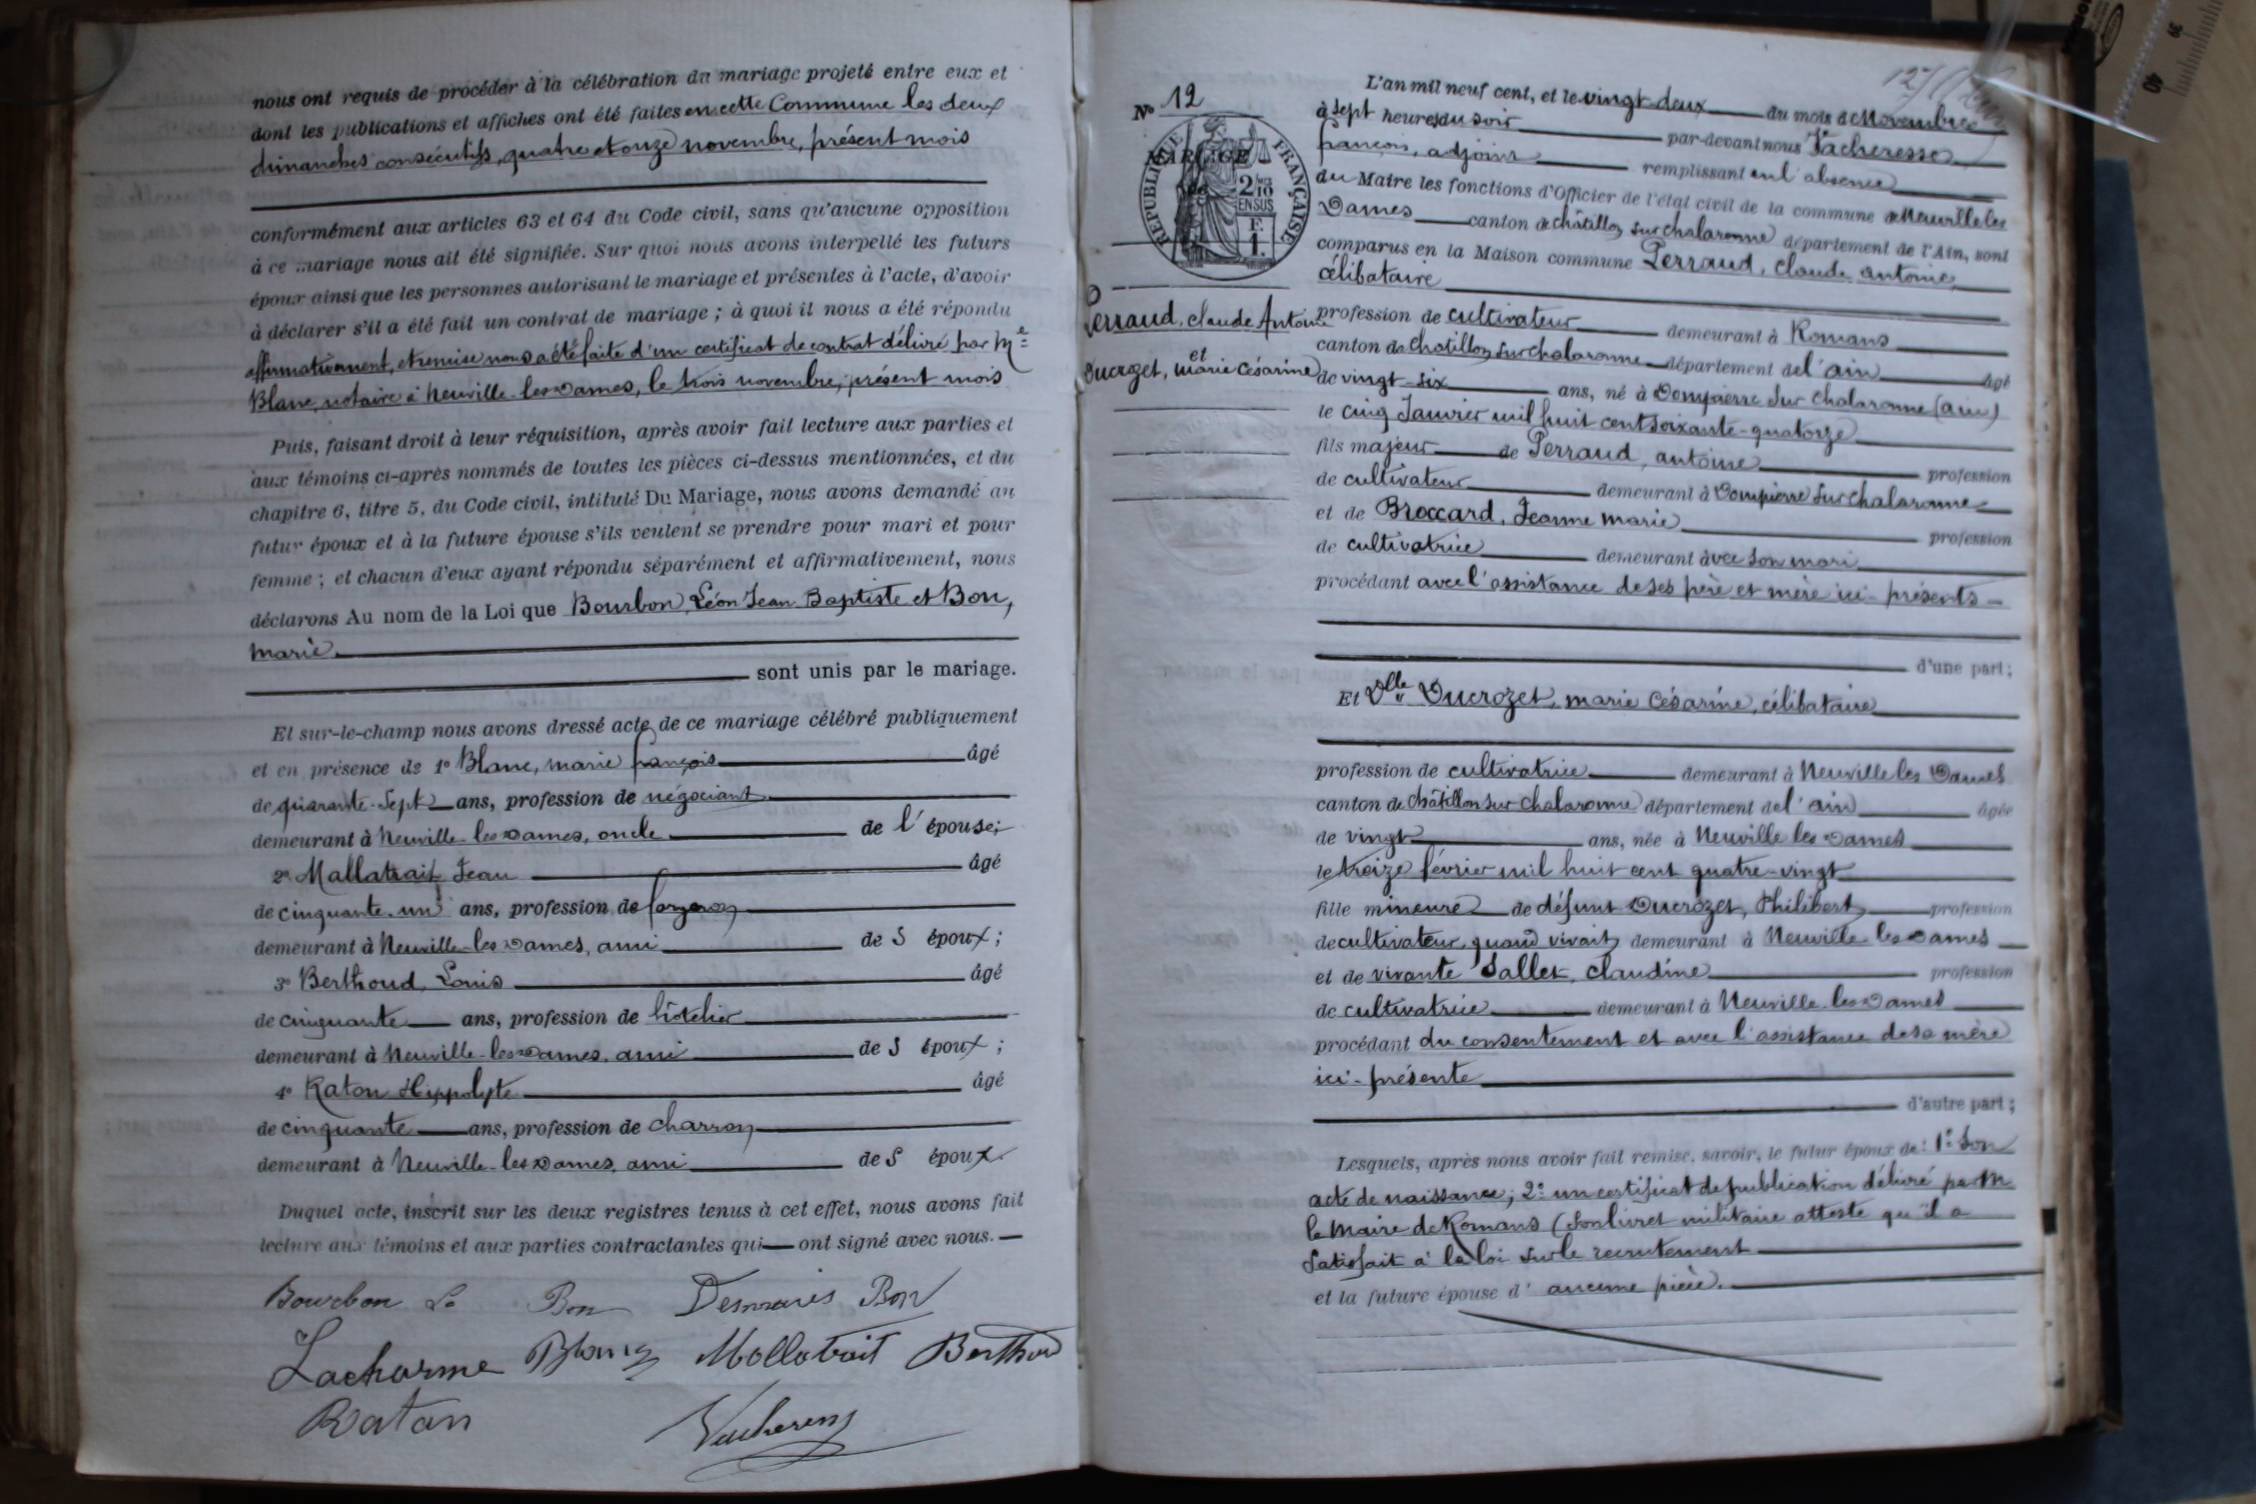 nous ont requis de procéder à la célébration du mariage projeté entre eux et
dont les publications et affiches ont été faites en cette Commune les deux
dimanches consécutifs, quatre et onze novembre, présent mois
conformément aux articles 63 et 64 du Code civil, sans qu'aucune opposition
à ce mariage nous ait été signifiée. Sur quoi nous avons interpellé les futurs
époux ainsi que les personnes autorisant le mariage et présentes à l'acte, d'avoir
à déclarer s'il a été fait un contrat de mariage ; à quoi il nous a été répondu
affirmativement, et remise nous a été faite d'un certificat de contrat délivré par Me
Blanc, notaire à Neuville-les-Dames, le trois novembre, présent mois
Puis, faisant droit à leur réquisition, après avoir fait lecture aux parties et
aux témoins ci-après nommés de toutes les pièces ci-dessus mentionnées, et du
chapitre 6, titre 5, du Code civil, intitulé Du Mariage, nous avons demandé au
futur époux et à la future épouse s'ils veulent se prendre pour mari et pour
femme ; et chacun d'eux ayant répondu séparément et affirmativement, nous
déclarons Au nom de la Loi que Bourbon, Léon Jean Baptiste et Bon,
marie
sont unis par le mariage.
Et sur-le-champ nous avons dressé acte de ce mariage célébré publiquement
et en présence de 1° Blanc, marie françois âgé
de quarante-sept ans, profession de négociant
demeurant à Neuville-les-Dames, oncle de l'épouse;
2° Mallatrait Jean âgé
de cinquante-un ans, profession de forgeron
demeurant à Neuville-les-Dames, ami de S époux ;
3° Berthoud, Louis âgé
de cinquante ans, profession de hôtelier
demeurant à Neuville-les-Dames, ami de S époux ;
4° Raton Hippolyte âgé
de cinquante ans, profession de charron
demeurant à Neuville-les-Dames, ami de S époux
Duquel acte, inscrit sur les deux registres tenus à cet effet, nous avons fait
lecture aux témoins et aux parties contractantes qui ont signé avec nous.
Bourbon Bon Desmaris Bon
Lacharme Blanc Mallatrait Berthoud
Ratan Vacheresse
N° 12
MARIAGE
RÉPUBLIQUE FRANÇAISE
2/10 EN SUS
F. 1.
Perraud, claude Antoine
et
Ducrozet, marie Césarine
L'an mil neuf cent, et le vingt-deux du mois de Novembre
à sept heures du soir par-devant nous Vacheresse
françois, adjoint remplissant en l'absence
du Maire les fonctions d'Officier de l'état civil de la commune de Neuville les
Dames canton de châtillon sur chalaronne département de l'Ain, sont
comparus en la Maison commune Perraud, claude antoine,
célibataire
profession de cultivateur demeurant à Romans
canton de chatillon sur chalaronne département de l'ain âgé
de vingt-six ans, né à Dompierre sur chalaronne (ain)
le cinq Janvier mil huit cent soixante-quatorze
fils majeur de Perraud, antoine profession
de cultivateur demeurant à Dompierre sur chalaronne
et de Broccard, Jeanne marie profession
de cultivatrice demeurant avec son mari
procédant avec l'assistance de ses père et mère ici-présents
d'une part;
Et Dlle Ducrozet, marie césarine, célibataire
profession de cultivatrice demeurant à Neuville les Dames
canton de châtillon sur chalaronne département de l'ain âgée
de vingt ans, née à Neuville les Dames
le treize février mil huit cent quatre-vingt
fille mineure de défunt Ducrozet, Philibert profession
de cultivateur, quand vivait demeurant à Neuville les Dames
et de vivante Sallet, claudine profession
de cultivatrice demeurant à Neuville-les Dames
procédant du consentement et avec l'assistance de sa mère
ici-présente
d'autre part ;
Lesquels, après nous avoir fait remise, savoir, le futur époux de : 1° son
acte de naissance; 2° un certificat de publication délivré par M
le Maire de Romans (son livret militaire atteste qu'il a
satisfait à la loi sur le recrutement
et la future épouse d' aucune pièce.